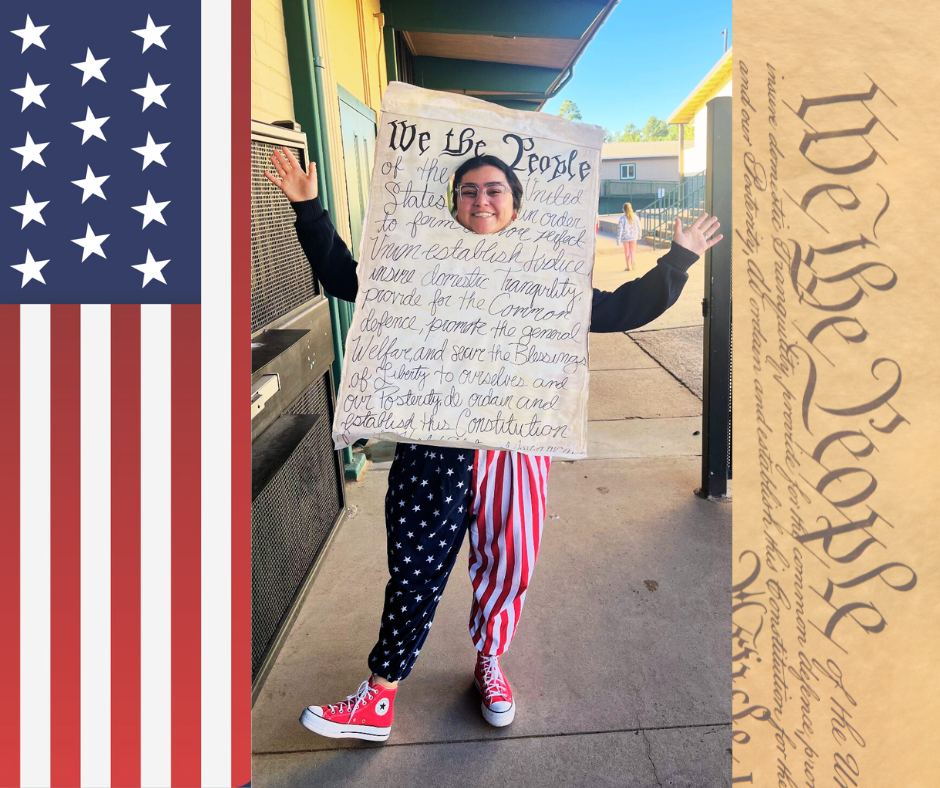 We the People
of the United
States in order
to form more perfect
Union establish Justice
insure domestic Tranquility,
provide for the Common
defence, promote the general
Welfare, and secure the Blessings
of Liberty to ourselves and
our Posterity, do ordain and
establish this Constitution
We the People of the Un
insure domestic Tranquility, provide for the common defence, prom
and our Posterity, do ordain and establish this Constitution for the